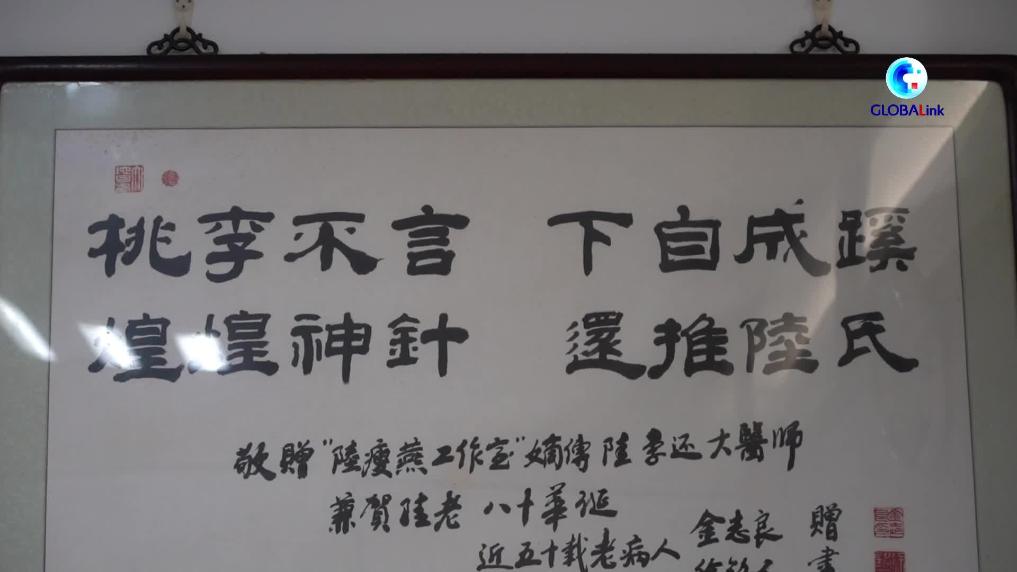 GLOBALink
桃李不言 下自成蹊
煌煌神針 還推陸氏
敬贈"陸瘦燕工作室"嫡傳陸李还大醫師
兼賀陸老 八十華诞
近五十載老病人 金志良 贈書